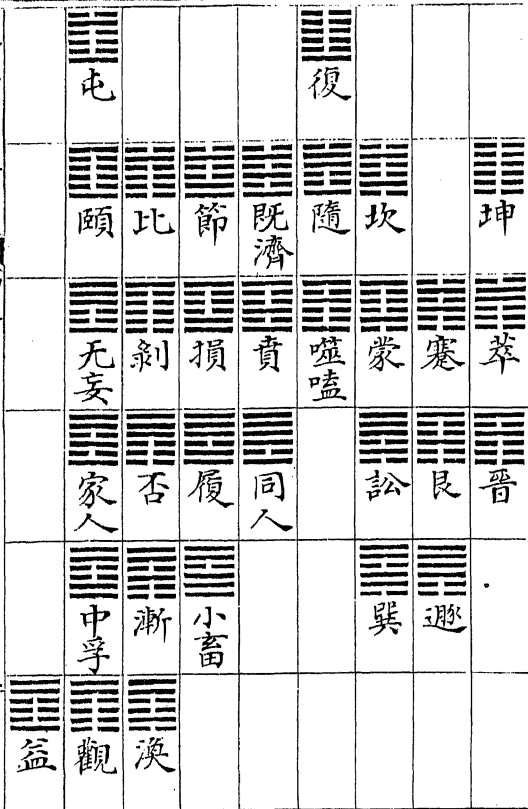 坤 萃 晉
蹇 艮 遯
坎 蒙 訟 巽
復 隨 噬嗑
既濟 賁 同人
節 損 履 小畜
比 剝 否 漸 渙
屯 頤 无妄 家人 中孚 觀
益